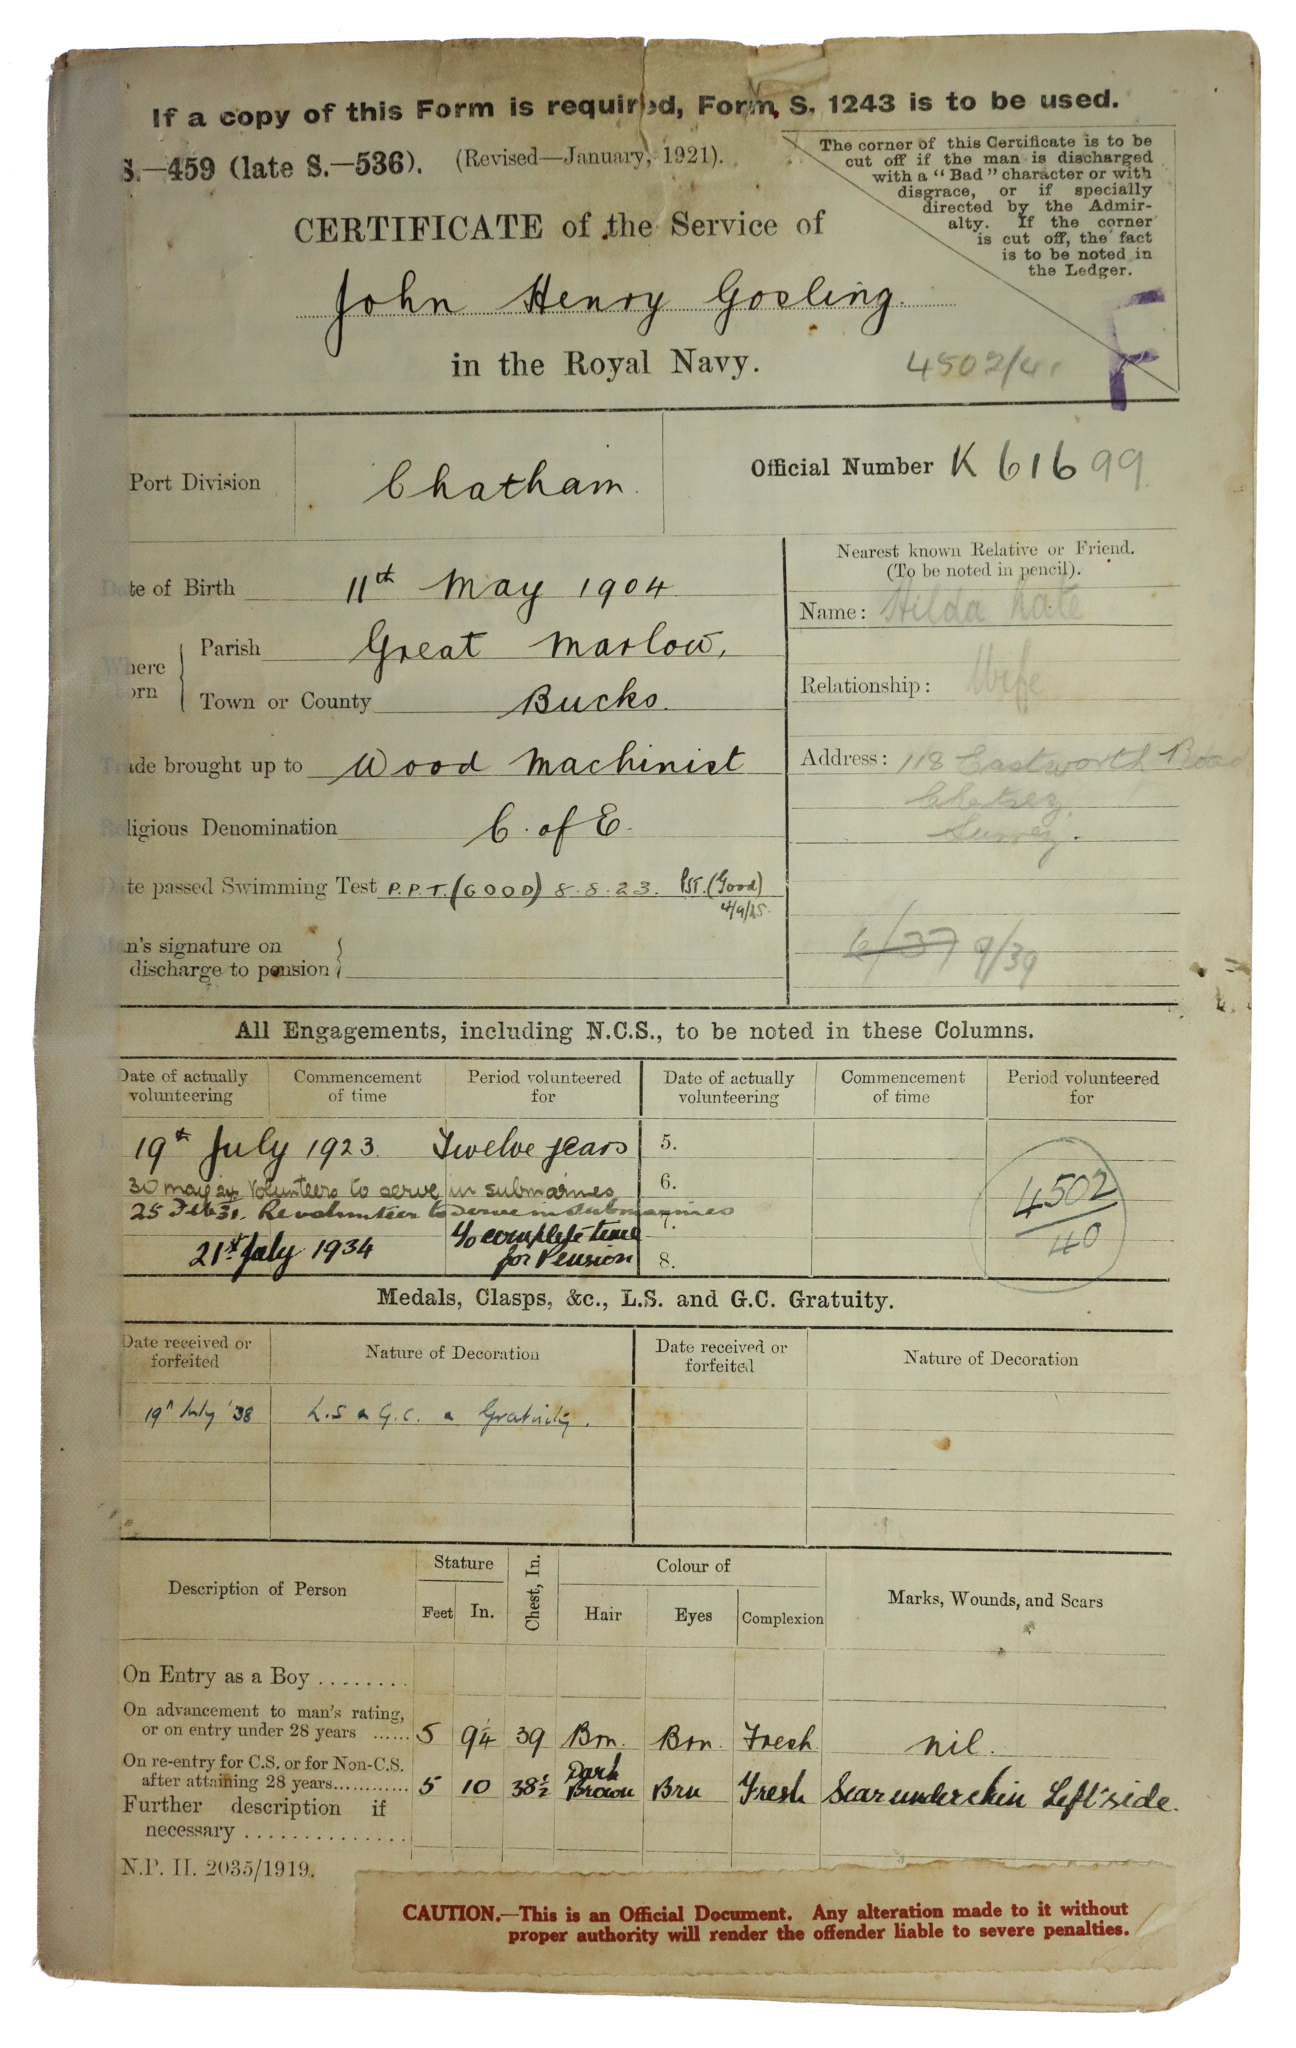 If a copy of this Form is required, Form S. 1243 is to be used.
S.—459 (late S.—536). (Revised—January, 1921).
The corner of this Certificate is to be
cut off if the man is discharged
with a "Bad" character or with
disgrace, or if specially
directed by the Admir-
alty. If the corner
is cut off, the fact
is to be noted in
the Ledger.
CERTIFICATE of the Service of
John Henry Gosling.
in the Royal Navy.
4502/41
F
Port Division Chatham.
Official Number K 61699
Date of Birth 11th May 1904
Where born
Parish Great Marlow,
Town or County Bucks.
Trade brought up to Wood Machinist
Religious Denomination C. of E.
Date passed Swimming Test P.P.T. (GOOD) 8.8.23. PST. (Good)
4/9/25.
Man's signature on
discharge to pension
Nearest known Relative or Friend.
(To be noted in pencil).
Name: Hilda Kate
Relationship: Wife
Address: 118 Eastworth Road
Chertsey
Surrey.
6/37 9/39
All Engagements, including N.C.S., to be noted in these Columns.
Date of actually volunteering Commencement of time Period volunteered for Date of actually volunteering Commencement of time Period volunteered for
1. 19th July 1923. Twelve years 5.
30 May Volunteers to serve in submarines 6.
25 Feb 31. Revolunteer to serve in submarines 7.
21st July 1934 To complete time
for Pension 8.
4502
40
Medals, Clasps, &c., L.S. and G.C. Gratuity.
Date received or forfeited Nature of Decoration Date received or forfeited Nature of Decoration
19th July '38 L.S & G.C. & Gratuity.
Description of Person Stature Chest, In. Colour of Marks, Wounds, and Scars
Feet In. Hair Eyes Complexion
On Entry as a Boy ........
On advancement to man's rating,
or on entry under 28 years ...... 5 9¼ 39 Brn. Brn. Fresh nil.
On re-entry for C.S. or for Non-C.S.
after attaining 28 years............ 5 10 38½ Dark Brown Brn Fresh Scar under chin Left side.
Further description if
necessary ...............
N.P. II. 2035/1919.
CAUTION.—This is an Official Document. Any alteration made to it without
proper authority will render the offender liable to severe penalties.